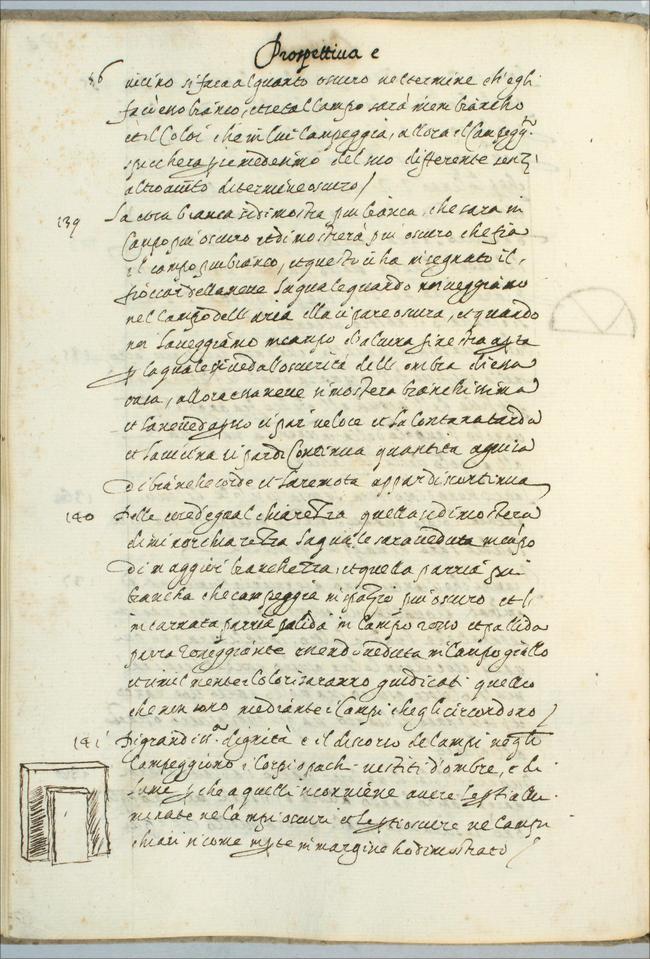 Prospettiva e
86
vicino si fara alquanto oscuro nel termine ch'egli
facieno bianco, et se tal campo sarà men biancho
et il color che in lui campeggia, allora il campegg.
spicchera per se medesimo del suo differente senz'
altro aiuto di termine oscuro /
139 La cosa bianca si dimostra piu bianca, che sara in
campo piu oscuro et dimosterà piu oscuro che fia
il campo piu bianco, et questo ci ha insegnato il
fioccar della neue la quale quando noi veggiamo
nel campo dell'aria ella ci pare oscura, et quando
noi la veggiamo in campo d'alcuna finestra aperta
per la quale si veda l'oscurità dell'ombra di essa
casa, allora essa neue si mostera bianchissima
et la neue d'apresso ci par veloce et la lontana tarda
et la vicina ci par di continua quantità a guisa
di bianche corde et la remota appar discontinua
140 Delle cose d'egual chiarezza quella si dimostera
di minor chiarezza la quale sara veduta in campo
di maggior bianchezza, et quella parrà piu
biancha che campeggia in spatio piu oscuro et l'
incarnata parrà palida in campo rosso et pallida
parrà rosseggiante essendo veduta in campo giallo
et simil mente i colori saranno giudicati quello
che non sono mediante i campi che gli circondono /
141 Di grandiss.ª dignità e il discorso de campi negli
campeggiono i corpi opachi vestiti d'ombre, e di
lume, per che a quelli si conviene avere le parti allu
minate ne campi oscuri et le parti oscure ne campi
chiari si come in parte in margine ho dimostrato /